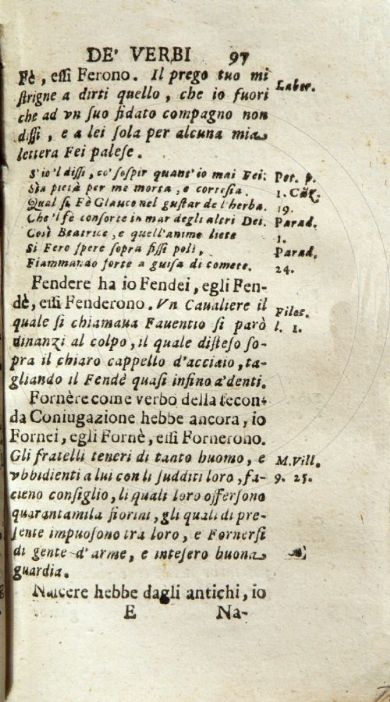 DE' VERBI 97
Fè, essi Ferono. Il prego tuo mi
strigne a dirti quello, che io fuori
che ad vn suo fidato compagno non
dissi, e a lei sola per alcuna mia
lettera Fei palese.
Laber.
S'io'l dissi, co' sospir quant'io mai Fei:
Sia pietà per me morta, e cortesia.
Qual si Fè Glauco nel gustar de l'herba.
Che'l fè consorte in mar degli altri Dei.
Così Beatrice, e quell'anime liete
Si Fero spere sopra fissi poli,
Fiammando forte a guisa di comete.
Pet. p.
1. Cāz.
19.
Parad.
1.
Parad.
24.
Fendere ha io Fendei, egli Fen-
dè, essi Fenderono. Vn Caualiere il
quale si chiamaua Fauentio si parò
dinanzi al colpo, il quale disteso so-
pra il chiaro cappello d'acciaio, ta-
gliando il Fendè quasi insino a' denti.
Filoc.
l. 1.
Fornère come verbo della secon-
da Coniugazione hebbe ancora, io
Fornei, egli Fornè, essi Fornerono.
Gli fratelli teneri di tanto huomo, e
vbbidienti a lui con li sudditi loro, fa-
cieno consiglio, li quali loro offersono
quarantamila fiorini, gli quali di pre-
sente impuosono tra loro, e Fornersi
di gente d'arme, e intesero buona
guardia.
M. Vill.
9. 25.
Nascere hebbe dagli antichi, io
E Na-